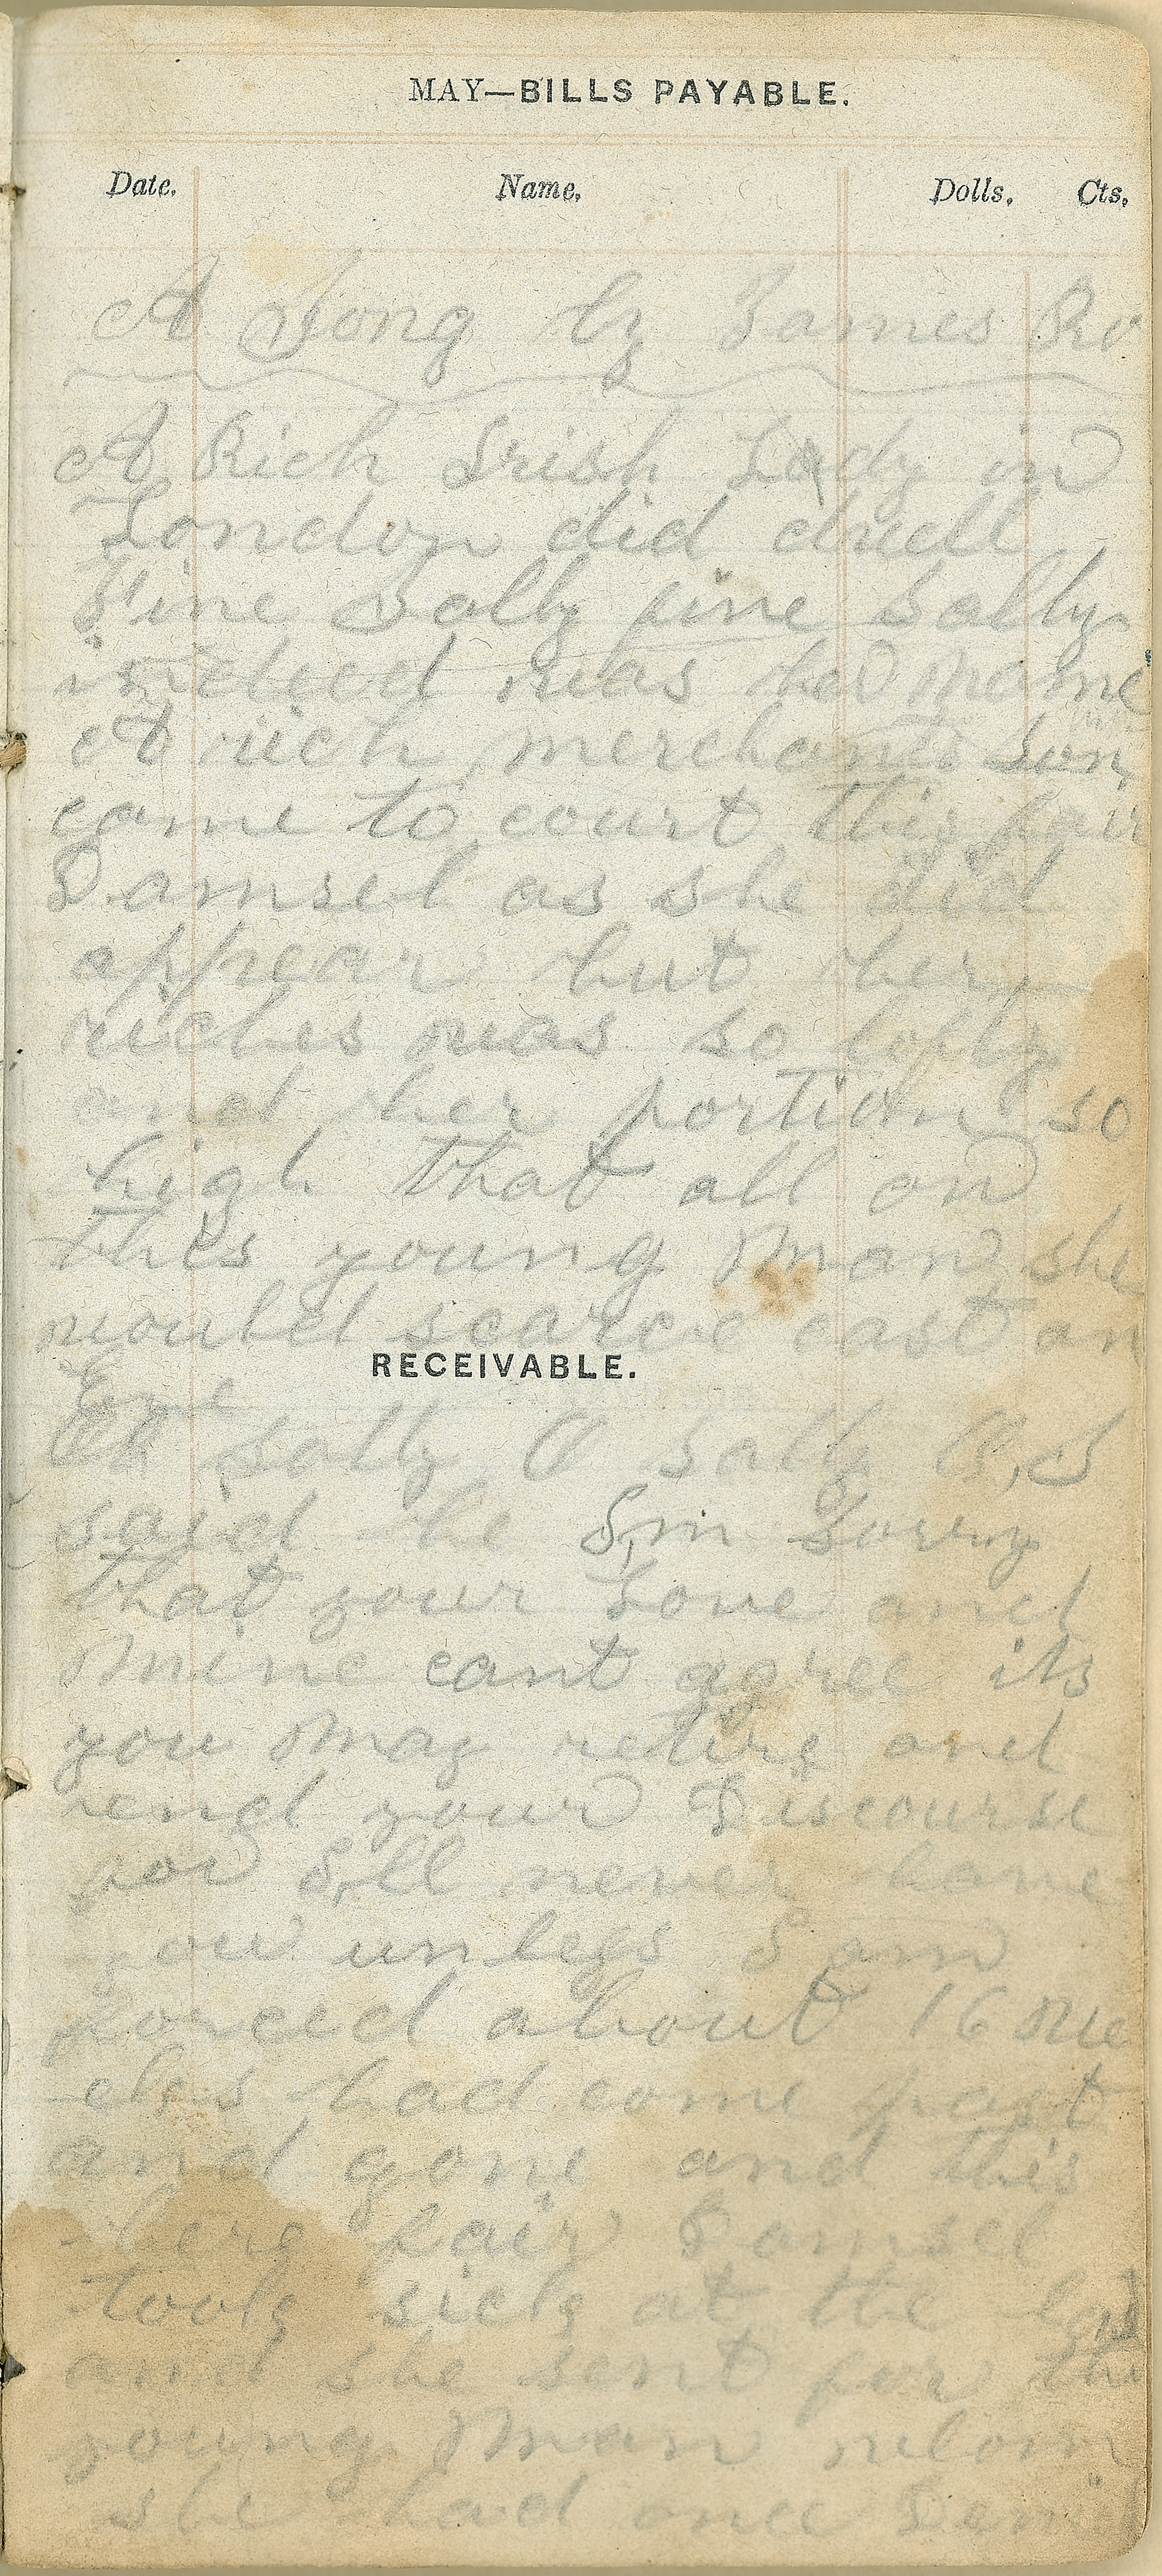 MAY—BILLS PAYABLE.
Date. Name. Dolls. Cts.
A Song by James Ro
A Rich Irish Lady in
London did dwell
Fine Sally fine Sally
indeed was her name
A rich merchants Son
came to court this fair
Damsel as she did
appear but her
riches was so lofty
and her portion so
high that all on
this young Man she
would scarce cast an
RECEIVABLE.
Eye
Oh Sally O Sally O, S
said he I,m Sorry
that your Love and
Mine cant agree its
you May retire and
end your Discourse
for I,ll never have
you unless I am
forced about 16 we
eks had come past
and gone and this
here fair Damsel
took sick at the
and she sent for the
young Man whom
she had once Denid